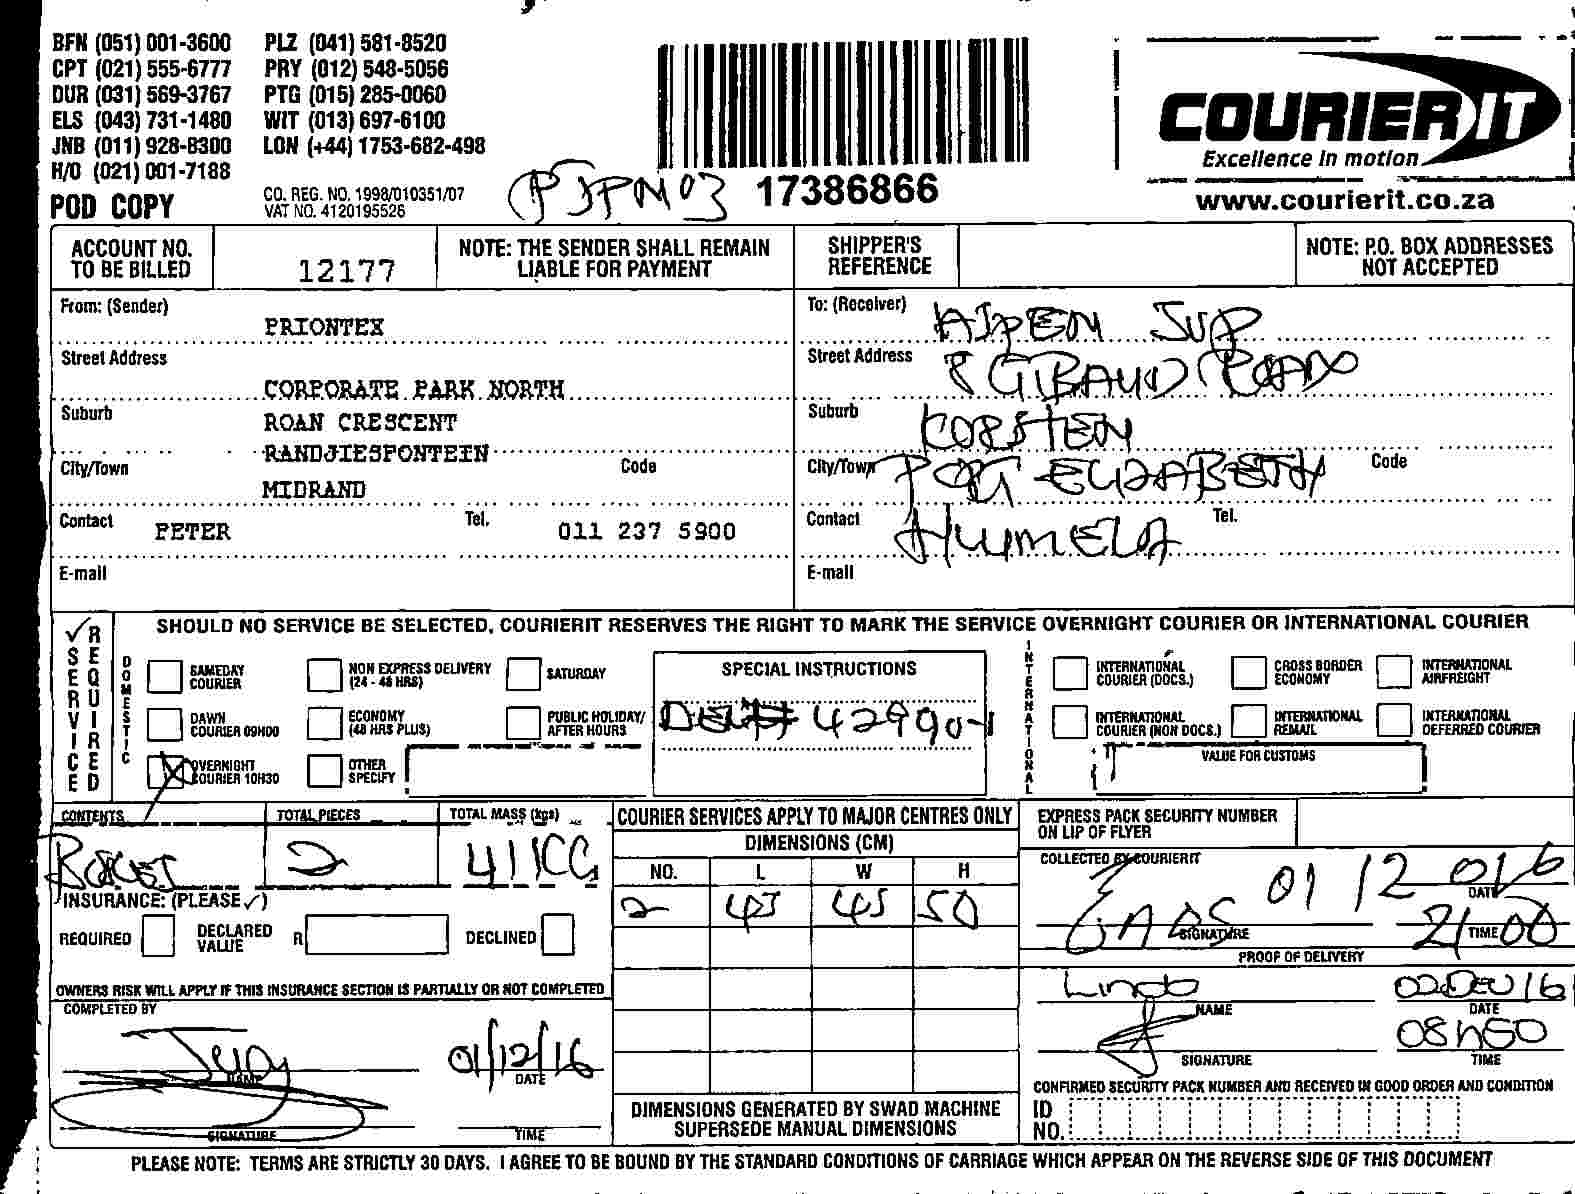 BFN (051) 001-3600 PLZ (041) 581-8520
CPT (021) 555-6777 PRY (012) 548-5056
DUR (031) 569-3767 PTG (015) 285-0060
ELS (043) 731-1480 WIT (013) 697-6100
JNB (011) 928-8300 LON (+44) 1753-682-498
H/O (021) 001-7188
POD COPY
CO. REG. NO. 1998/010351/07
VAT NO. 4120195526
PJPM03
17386866
COURIER IT
Excellence in motion
www.courierit.co.za
ACCOUNT NO. TO BE BILLED
12177
NOTE: THE SENDER SHALL REMAIN LIABLE FOR PAYMENT
SHIPPER'S REFERENCE
NOTE: P.O. BOX ADDRESSES NOT ACCEPTED
From: (Sender)
PRIONTEX
Street Address
CORPORATE PARK NORTH
Suburb
ROAN CRESCENT
RANDJIESPONTEIN
City/Town
Code
MIDRAND
Contact PETER Tel. 011 237 5900
E-mail
To: (Receiver) AJPEN SUP
Street Address 8 GIBAUD ROAD
Suburb KORSTEN
City/Town PORT ELIZABETH Code
Contact HUMELA Tel.
E-mail
SERVICE REQUIRED
SHOULD NO SERVICE BE SELECTED, COURIERIT RESERVES THE RIGHT TO MARK THE SERVICE OVERNIGHT COURIER OR INTERNATIONAL COURIER
DOMESTIC
SAMEDAY COURIER
NON EXPRESS DELIVERY (24 - 48 HRS)
SATURDAY
DAWN COURIER 09H00
ECONOMY (48 HRS PLUS)
PUBLIC HOLIDAY/ AFTER HOURS
OVERNIGHT COURIER 10H30
OTHER SPECIFY
SPECIAL INSTRUCTIONS
42990-1
INTERNATIONAL
INTERNATIONAL COURIER (DOCS.)
CROSS BORDER ECONOMY
INTERNATIONAL AIRFREIGHT
INTERNATIONAL COURIER (NON DOCS.)
INTERNATIONAL REMAIL
INTERNATIONAL DEFERRED COURIER
VALUE FOR CUSTOMS
CONTENTS
TOTAL PIECES
2
TOTAL MASS (kgs)
41KG
INSURANCE: (PLEASE ✓)
REQUIRED
DECLARED VALUE R
DECLINED
OWNERS RISK WILL APPLY IF THIS INSURANCE SECTION IS PARTIALLY OR NOT COMPLETED
COMPLETED BY
Judy
NAME
01/12/16
DATE
SIGNATURE
TIME
COURIER SERVICES APPLY TO MAJOR CENTRES ONLY
DIMENSIONS (CM)
NO. L W H
2 45 45 50
DIMENSIONS GENERATED BY SWAD MACHINE SUPERSEDE MANUAL DIMENSIONS
EXPRESS PACK SECURITY NUMBER ON LIP OF FLYER
COLLECTED BY COURIERIT
01 12 016
DATE
SIGNATURE
21:00
TIME
PROOF OF DELIVERY
Linda
NAME
02 DEC 16
DATE
SIGNATURE
08h50
TIME
CONFIRMED SECURITY PACK NUMBER AND RECEIVED IN GOOD ORDER AND CONDITION
ID NO.
PLEASE NOTE: TERMS ARE STRICTLY 30 DAYS. I AGREE TO BE BOUND BY THE STANDARD CONDITIONS OF CARRIAGE WHICH APPEAR ON THE REVERSE SIDE OF THIS DOCUMENT